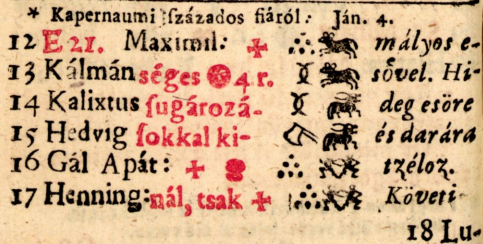 * Kapernaumi százados fiáról: Ján. 4.
12 E 21. Maximil: mályos e-
13 Kálmán séges 4 r. sővel. Hi-
14 Kalixtus sugározá- deg esőre
15 Hedvig sokkal ki- és darára
16 Gál Apát: tzéloz.
17 Henning: nál, tsak Követi
18 Lu-